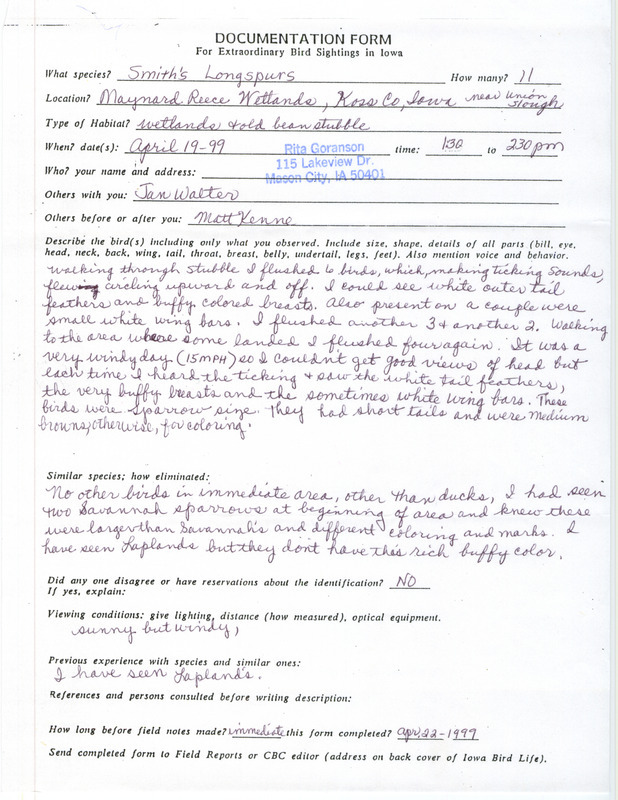 DOCUMENTATION FORM
For Extraordinary Bird Sightings in Iowa
What species? Smith's Longspurs How many? 11
Location? Maynard Reece Wetlands, Koss Co, Iowa near Union Slough
Type of Habitat? wetlands & old bean stubble
When? date(s): April 19-99 time: 1:30 to 230 pm
Rita Goranson
115 Lakeview Dr.
Mason City, IA 50401
Who? your name and address:
Others with you: Jan Walter
Others before or after you: Matt Kenne
Describe the bird(s) including only what you observed. Include size, shape, details of all parts (bill, eye,
head, neck, back, wing, tail, throat, breast, belly, undertail, legs, feet). Also mention voice and behavior.
Walking through stubble I flushed 6 birds, which, making ticking sounds,
flew circling upward and off. I could see white outer tail
feathers and buffy colored breasts. Also present on a couple were
small white wing bars. I flushed another 3 & another 2. Walking
to the area where some landed I flushed four again. It was a
very windy day (15 MPH) so I couldn't get good views of head but
each time I heard the ticking & saw the white tail feathers,
the very buffy breasts and the sometimes white wing bars. These
birds were sparrow size. They had short tails and were medium
browns, otherwise, for coloring.
Similar species; how eliminated:
No other birds in immediate area, other than ducks, I had seen
two Savannah sparrows at beginning of area and knew these
were larger than Savannah's and different coloring and marks. I
have seen Laplands but they don't have this rich buffy color.
Did any one disagree or have reservations about the identification? NO
If yes, explain:
Viewing conditions: give lighting, distance (how measured), optical equipment.
sunny but windy,
Previous experience with species and similar ones:
I have seen Lapland's.
References and persons consulted before writing description:
How long before field notes made? immediate this form completed? Apr. 22-1999
Send completed form to Field Reports or CBC editor (address on back cover of Iowa Bird Life).